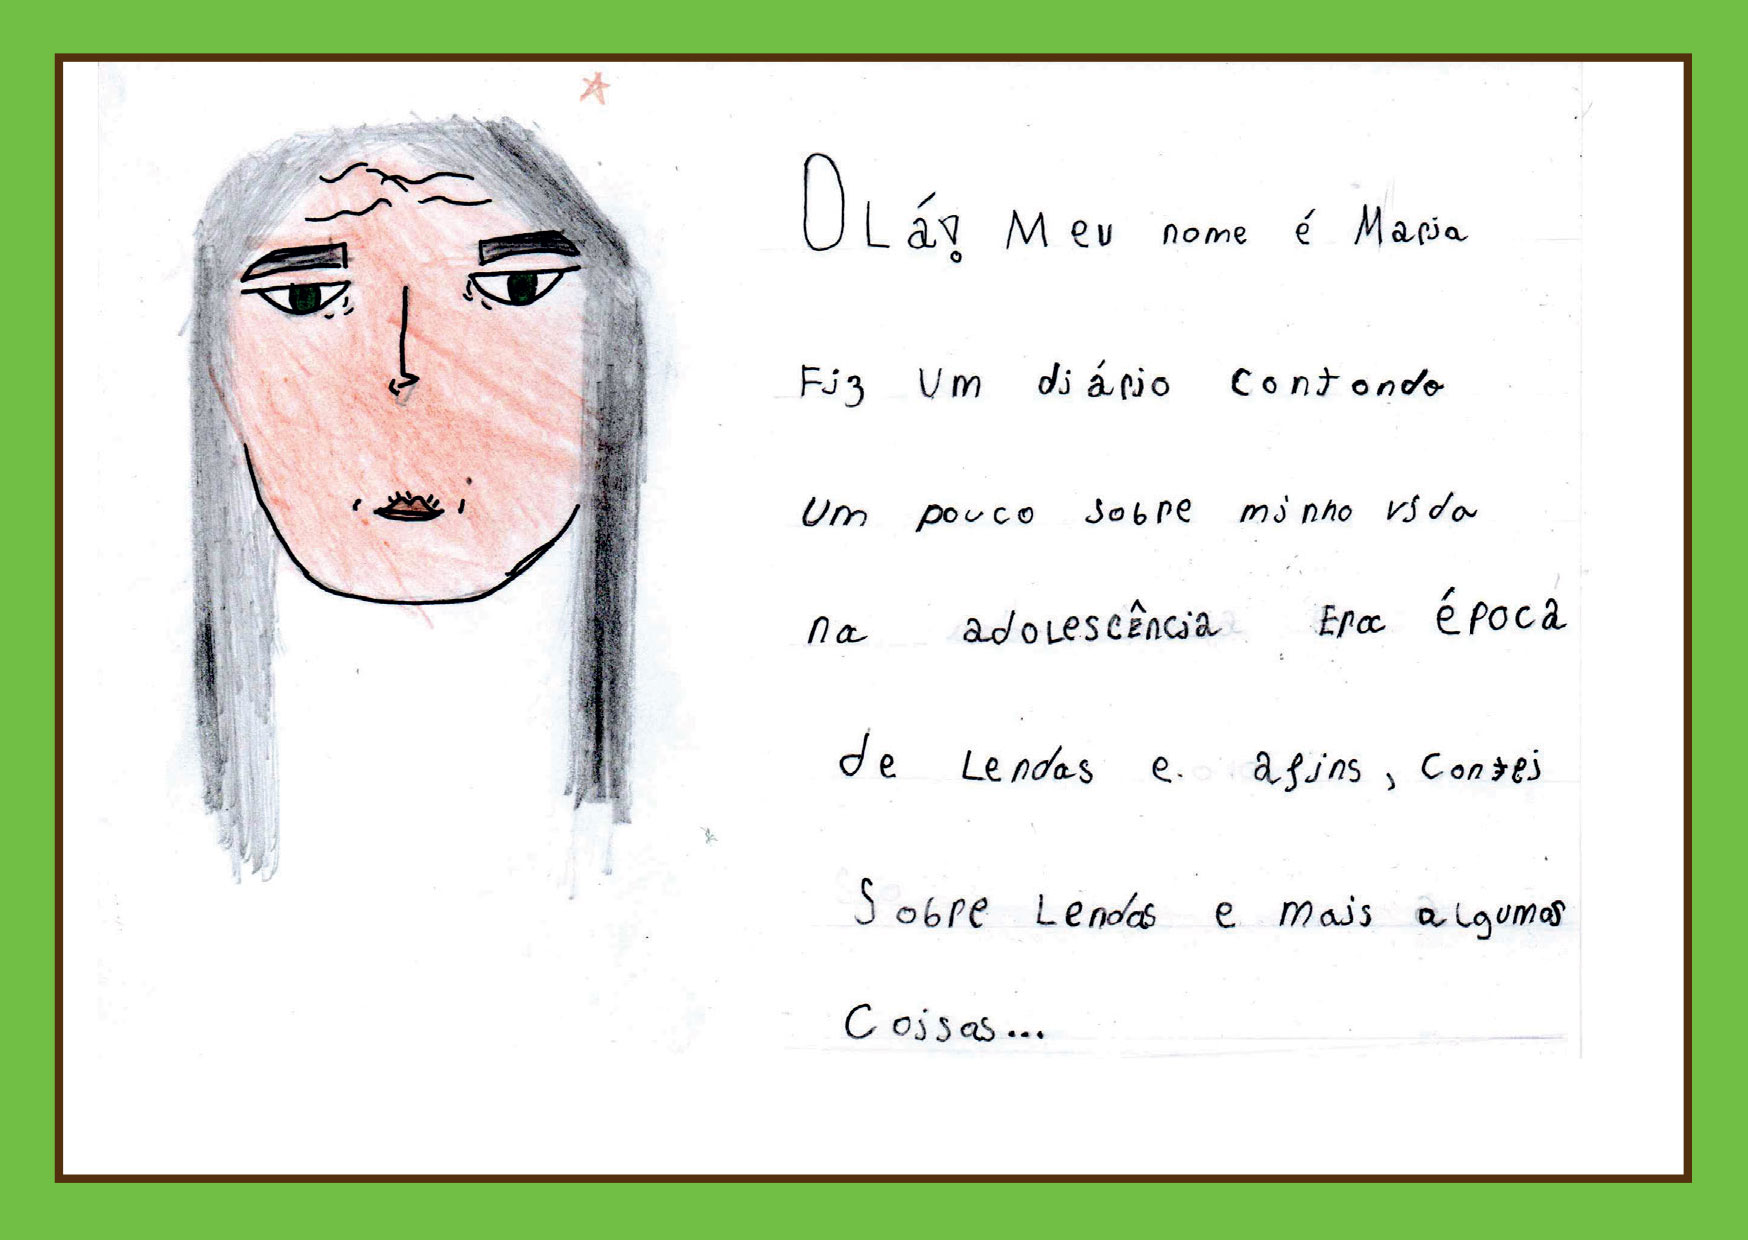 Olá! Meu nome é Maria
Fiz um diário contando
um pouco sobre minha vida
na adolescência Era época
de Lendas e afins, contei
Sobre Lendas e mais algumas
Coisas...